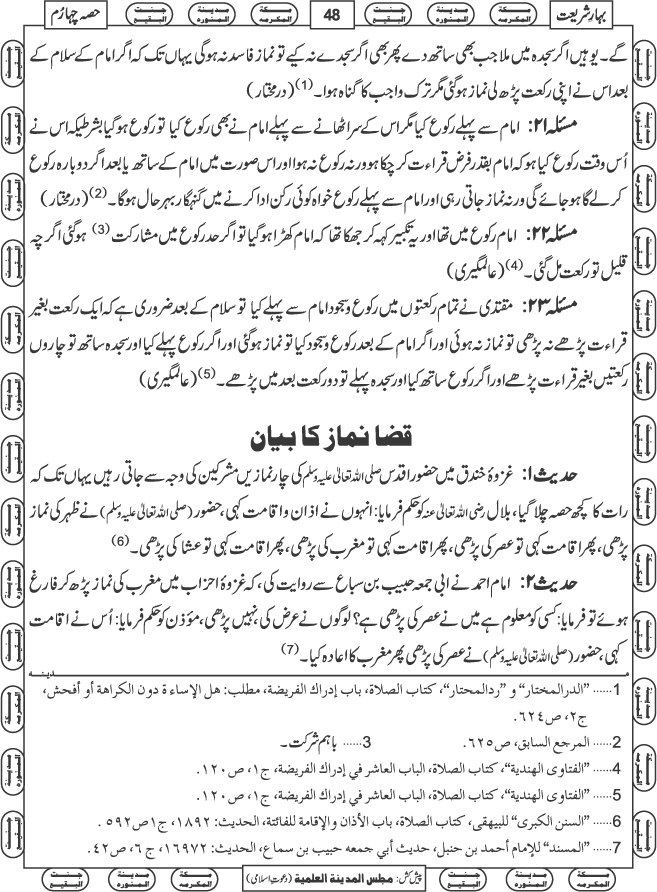 بہارِ شریعت
48
حصہ چہارم
گے۔ یوہیں اگر سجدہ میں ملا جب بھی ساتھ دے پھر بھی اگر سجدے نہ کیے تو نماز فاسد نہ ہوگی یہاں تک کہ اگر امام کے سلام کے
بعد اس نے اپنی رکعت پڑھ لی نماز ہوگئی مگر ترک واجب کا گناہ ہوا۔(1) (درمختار)
مسئلہ ۲۱: امام سے پہلے رکوع کیا مگر اس کے سر اٹھانے سے پہلے امام نے بھی رکوع کیا تو رکوع ہوگیا بشرطیکہ اس نے
اُس وقت رکوع کیا ہو کہ امام بقدر فرض قراءت کر چکا ہو ورنہ رکوع نہ ہوا اور اس صورت میں امام کے ساتھ یا بعد اگر دوبارہ رکوع
کر لے گا ہو جائے گی ورنہ نماز جاتی رہی اور امام سے پہلے رکوع خواہ کوئی رکن ادا کرنے میں گنہگار بہرحال ہوگا۔(2) (درمختار)
مسئلہ ۲۲: امام رکوع میں تھا اور یہ تکبیر کہہ کر جھکا تھا کہ امام کھڑا ہوگیا تو اگر حد رکوع میں مشارکت (3) ہوگئی اگرچہ
قلیل تو رکعت مل گئی۔(4) (عالمگیری)
مسئلہ ۲۳: مقتدی نے تمام رکعتوں میں رکوع و سجود امام سے پہلے کیا تو سلام کے بعد ضروری ہے کہ ایک رکعت بغیر
قراءت پڑھے نہ پڑھی تو نماز نہ ہوئی اور اگر امام کے بعد رکوع و سجود کیا تو نماز ہوگئی اور اگر رکوع پہلے کیا اور سجدہ ساتھ تو چاروں
رکعتیں بغیر قراءت پڑھے اور اگر رکوع ساتھ کیا اور سجدہ پہلے تو دو رکعت بعد میں پڑھے۔(5) (عالمگیری)
قضا نماز کا بیان
حدیث ۱: غزوۂ خندق میں حضور اقدس صلی اللہ تعالیٰ علیہ وسلم کی چار نمازیں مشرکین کی وجہ سے جاتی رہیں یہاں تک کہ
رات کا کچھ حصہ چلا گیا، بلال رضی اللہ تعالیٰ عنہ کو حکم فرمایا: انہوں نے اذان و اقامت کہی، حضور (صلی اللہ تعالیٰ علیہ وسلم) نے ظہر کی نماز
پڑھی، پھر اقامت کہی تو عصر کی پڑھی، پھر اقامت کہی تو مغرب کی پڑھی، پھر اقامت کہی تو عشا کی پڑھی۔(6)
حدیث ۲: امام احمد نے ابی جمعہ حبیب بن سباع سے روایت کی، کہ غزوۂ احزاب میں مغرب کی نماز پڑھ کر فارغ
ہوئے تو فرمایا: کسی کو معلوم ہے میں نے عصر کی پڑھی ہے؟ لوگوں نے عرض کی، نہیں پڑھی، مؤذن کو حکم فرمایا: اُس نے اقامت
کہی، حضور (صلی اللہ تعالیٰ علیہ وسلم) نے عصر کی پڑھی پھر مغرب کا اعادہ کیا۔(7)
1...... "الدرالمختار" و "ردالمحتار"، كتاب الصلاة، باب إدراك الفريضة، مطلب: هل الإساءة دون الكراهة أو أفحش،
ج٢، ص٦٢٤.
2...... المرجع السابق، ص٦٢٥. 3...... باہم شرکت۔
4...... "الفتاوى الهندية"، كتاب الصلاة، الباب العاشر في إدراك الفريضة، ج١، ص١٢٠.
5...... "الفتاوى الهندية"، كتاب الصلاة، الباب العاشر في إدراك الفريضة، ج١، ص١٢٠.
6...... "السنن الكبرى" للبيهقي، كتاب الصلاة، باب الأذان والإقامة للفائتة، الحديث: ١٨٩٢، ج١ص٥٩٢.
7...... "المسند" للإمام أحمد بن حنبل، حديث أبي جمعه حبيب بن سماع، الحديث: ١٦٩٧٢، ج٦، ص٤٢.
پیش کش: مجلس المدینۃ العلمیۃ (دعوتِ اسلامی)